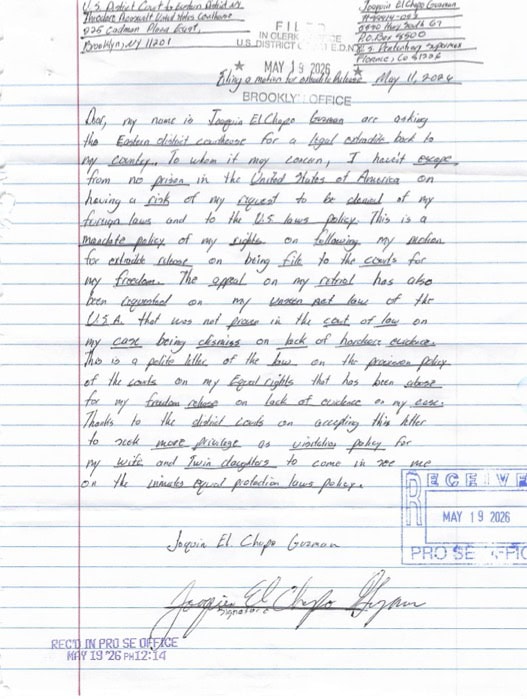 U.S. District Court to Eastern District NY
Theodore Roosevelt United States Courthouse
225 Cadman Plaza East,
Brooklyn, NY 11201
Joaquin El Chapo Guzman
P.O. Box 8500
Florence, Co 81226
FILED
IN CLERK OFFICE
U.S. DISTRICT COURT E.D.N.Y.
★ MAY 19 2026 ★
BROOKLYN OFFICE
Filing a motion for extradite Release May 11, 2026
Dear, my name is Joaquin El Chapo Guzman are asking
the Eastern district courthouse for a legal extradite back to
my country. To whom it may concern, I haven't escape
from no prison in the United States of America on
having a risk of my request to be cleared of my
foreign laws and to the U.S laws policy. This is a
mandate policy of my rights on following my motion
for extradite release on being file to the courts for
my freedom. The appeal on my retrial has also
been requested on my act law of the
U.S.A. that was not prove in the court of law on
my case being dismiss on lack of hardcore evidence.
This is a polite letter of the law on the provision policy
of the courts on my Equal rights that has been abuse
for my freedom release on lack of evidence on my case.
Thanks to the district courts on accepting this letter
to seek more privilege as visitation policy for
my wife and Twin daughters to come in see me
on the inmates equal protection laws policy.
RECEIVE
MAY 19 2026
PRO SE OFFIC
Joquin El Chapo Guzman
Joaquin El Chapo Guzman
Signature
REC'D IN PRO SE OFFICE
MAY 19 '26 PM12:14